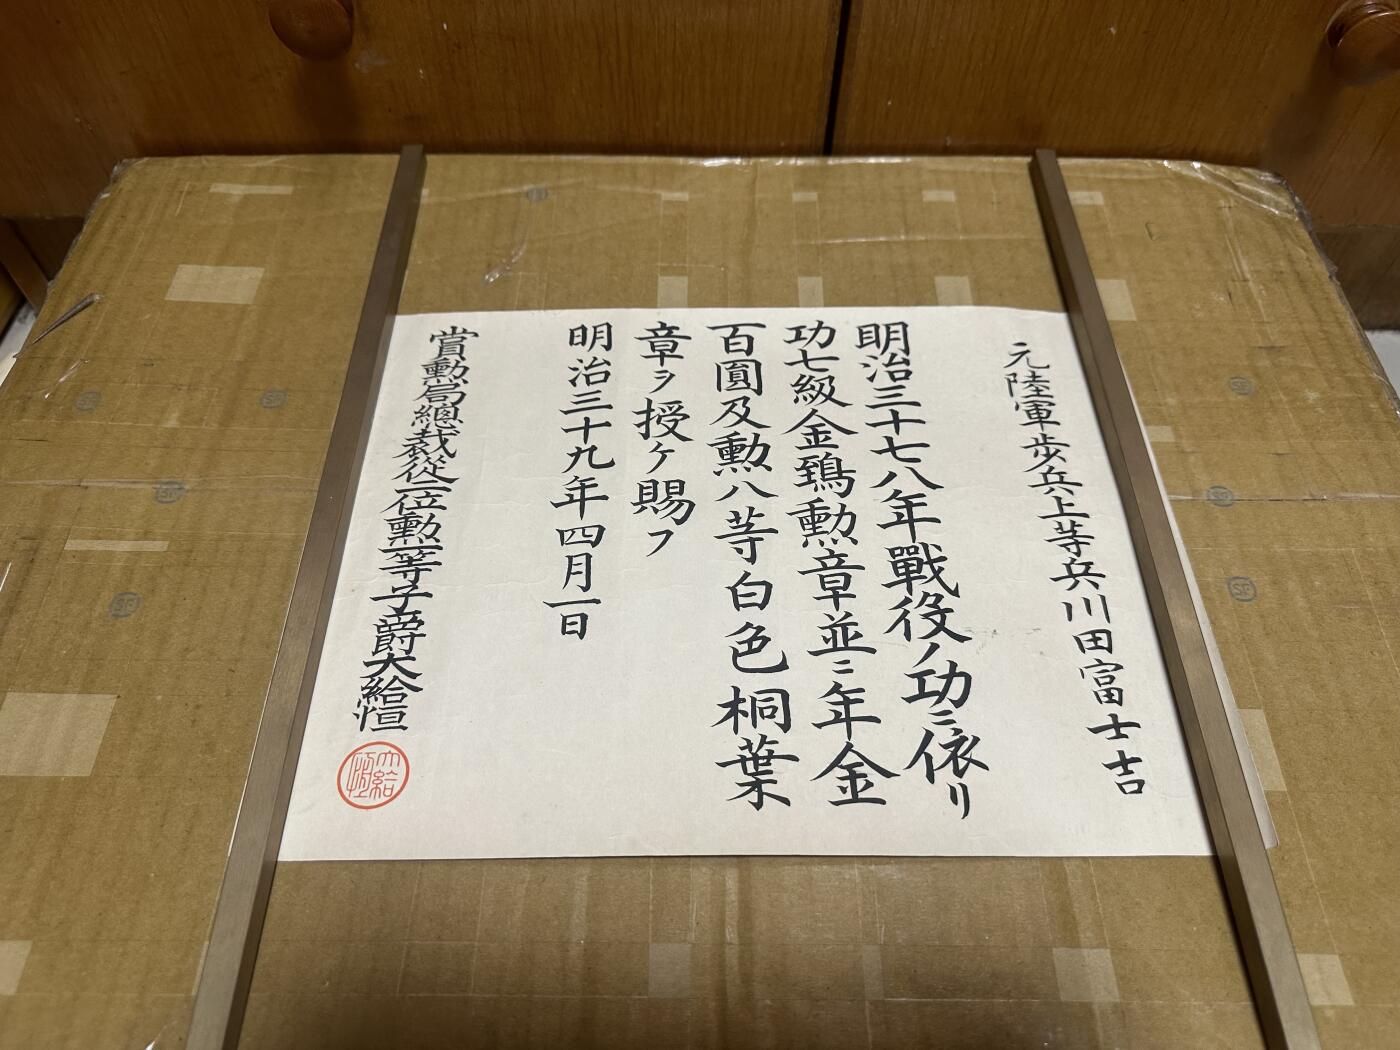 元陸軍歩兵上等兵川田富士吉
明治三十七八年戰役ノ功ニ依リ
功七級金鵄勲章並ニ年金
百圓及勲八等白色桐葉
章ヲ授ケ賜フ
明治三十九年四月一日
賞勲局總裁從二位勲一等子爵大給恒
大給恒